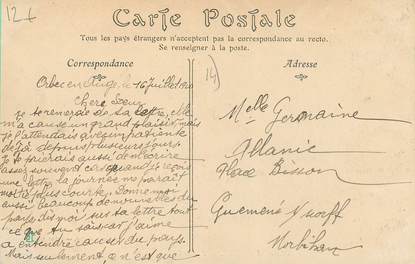 12 t
Carte Postale
Tous les pays étrangers n'acceptent pas la correspondance au recto.
Se renseigner à la poste.
Correspondance
Orbec en Auge, le 16 juillet
Chère Sœur
je te remercie de ta lettre, elle
m'a causé un grand plaisir mais
je l'attendais avec impatiente
déjà depuis plusieurs jours
je te prierais aussi de m'écrire
assez souvent car quand j'ai reçu
une lettre la journée me paraît
moitié plus courte. Donne moi
aussi beaucoup de nouvelles du
pays dis moi sur ta lettre tout
ce que tu sais car j'aime
a entendre causer du pays.
Mais seulement, ce n'est que
14
Adresse
Melle Germaine
Allanic
Place Bisson
Guémené s/ Scorff
Morbihan